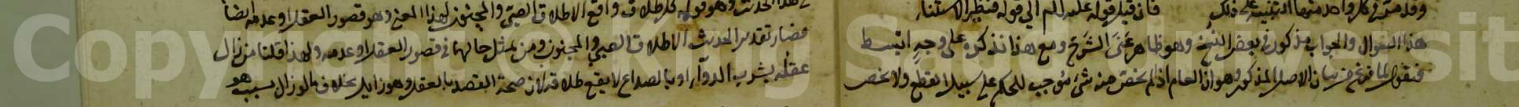 وقد مر في كل واحد منهما التنبيه على ذلك فان قيل قوله عليه السلم الي قوله فنظير الاستثناء
هذا السوال والجواب مذكور في بعض النسخ وهو ظاهر غني الشرح ومع هذا نذكره على وجه ابسط
فنقول لما فرغ من بيان الاصل المذكور وهو ان العام اذا لم يخص منه شئ موجب للحكم على سبيل القطع ولا يخص
وهو قوله كل طلاق واقع الا طلاق الصبي والمجنون لهذا المعنى وهو قصور العقل او عدمه ايضا
فصار تقدير الحديث الا طلاق الصبي والمجنون ومن بمثل حالهما في قصور العقل او عدمه ولهذا قلنا من زال
عقله بشرب الدواء او بالصداع لا يقع طلاقه لان صحة القصد بالعقل وهو زايل بخلاف ما لو زال بسبب هو